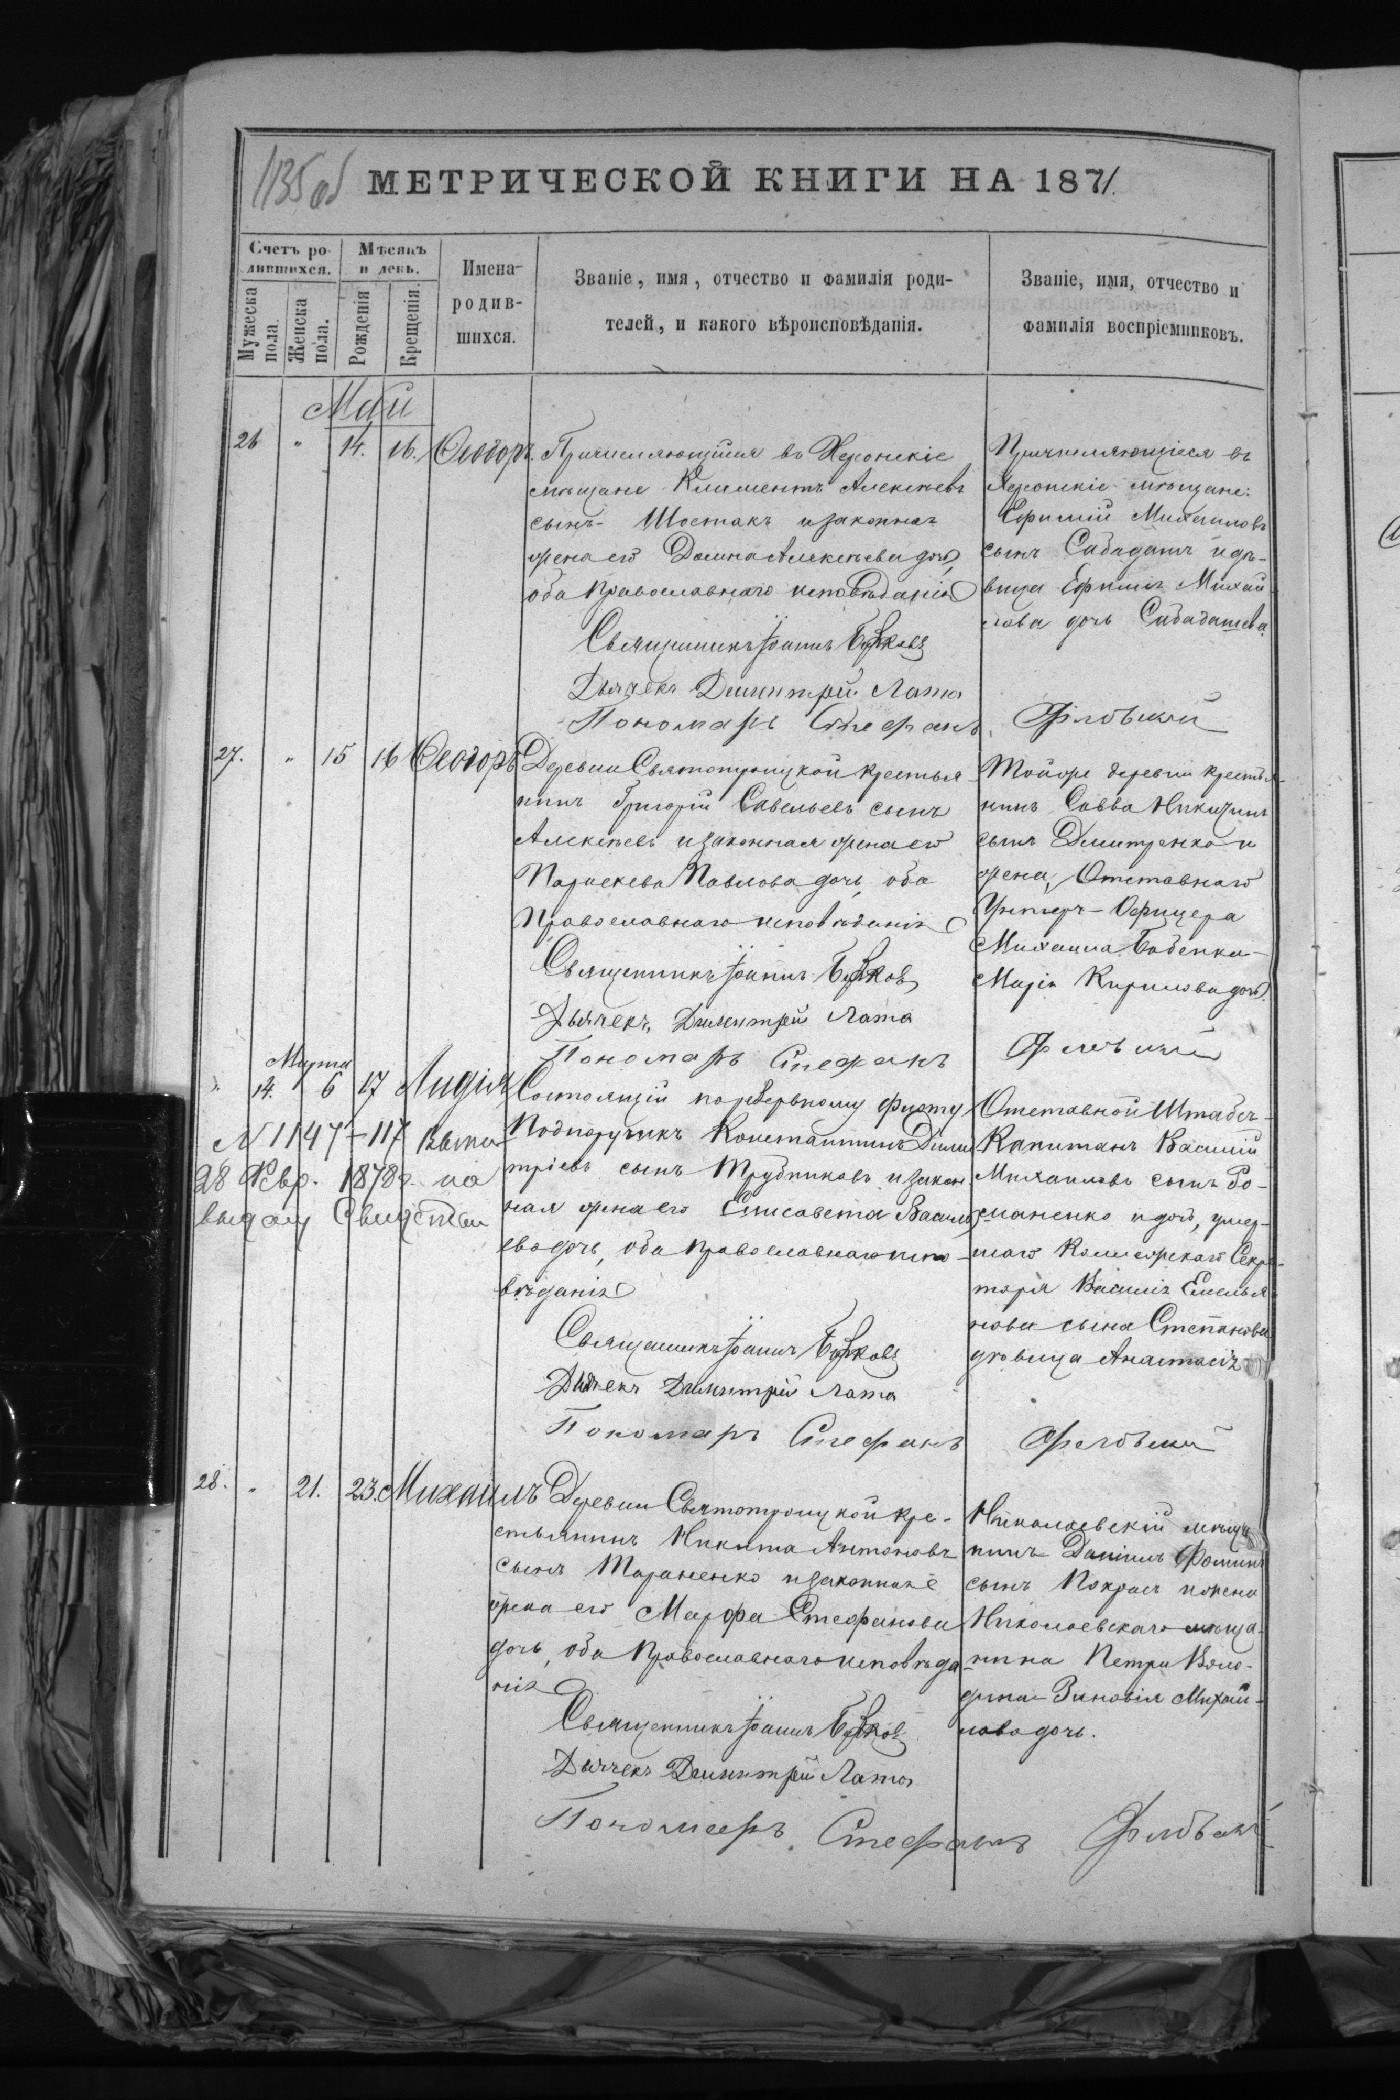 1135 об
МЕТРИЧЕСКОЙ КНИГИ НА 1871.
Счетъ ро-
дившихся.
Мѣсяцъ
и день.
Мужеска
пола.
Женска
пола.
Рожденія
Крещенія.
Имена
родив-
шихся.
Званіе, имя, отчество и фамилія роди-
телей, и какого вѣроисповѣданія.
Званіе, имя, отчество и
фамилія воспріемниковъ.
Май
26 " 14. 16. Ѳеодоръ.
Причисляющійся въ Херонскіе
мѣщане Климентъ Алексѣевъ
сынъ Шостакъ и законная
жена его Домна Алексѣева дочь,
оба православнаго исповѣданія
Священникъ Іоаннъ
Дьячекъ Димитрій Лата
Пономарь Стефанъ
Причисляющіеся въ
Херонскіе мѣщане:
Ефимій Михаиловъ
сынъ Сабадашъ и дѣ-
вица Ефимія Михай
лова дочь Сабадашева.
27. " 15 16 Ѳеодоръ
Деревни Святотроицкой крестья-
нинъ Григорій Савельевъ сынъ
Алексѣевъ и законная жена его
Параскева Павлова дочь, оба
Православнаго исповѣданія
Священникъ Іоаннъ
Дьячекъ Димитрій Лата
Пономарь Стефанъ
Тойже деревни крестья-
нинъ Савва Никитинъ
сынъ Дмитренко и
жена, Отставнаго
Унтеръ-Офицера
Михаила Бабенка-
Марія Кирилова дочь.
Марта
" 14. 6 17 Лидія
Состоящій по резервному флоту
Подпоручикъ Константинъ Дими
тріевъ сынъ Трубниковъ и закон
ная жена его Елисавета Василь
ева дочь, оба православнаго испо-
вѣданія
№ 1147-117
28 Февр. 1878г. на
выдачу
Священникъ Іоаннъ
Дьячекъ Димитрій Лата
Пономарь Стефанъ
Отставной Штабсъ-
Капитанъ Василій
Михаиловъ сынъ Ро-
маненко и дочь, умер-
шаго Коллежскаго Секре-
таря Василія Емелья
нова сына Степанова
дѣвица Анастасія
28. " 21. 23. Михаилъ
Деревни Святотроицкой кре-
стьянинъ Никита Антоновъ
сынъ Тараненко и законная
жена его Марфа Стефанова
дочь, оба Православнаго исповѣда-
нія
Священникъ Іоаннъ
Дьячекъ Димитрій Лата
Пономарь Стефанъ
Николаевскій мѣща
нинъ Даніилъ Фоминъ
сынъ Покрасъ и жена
Николаевскаго мѣща-
нина Петра
Зиновія Михай-
лова дочь.